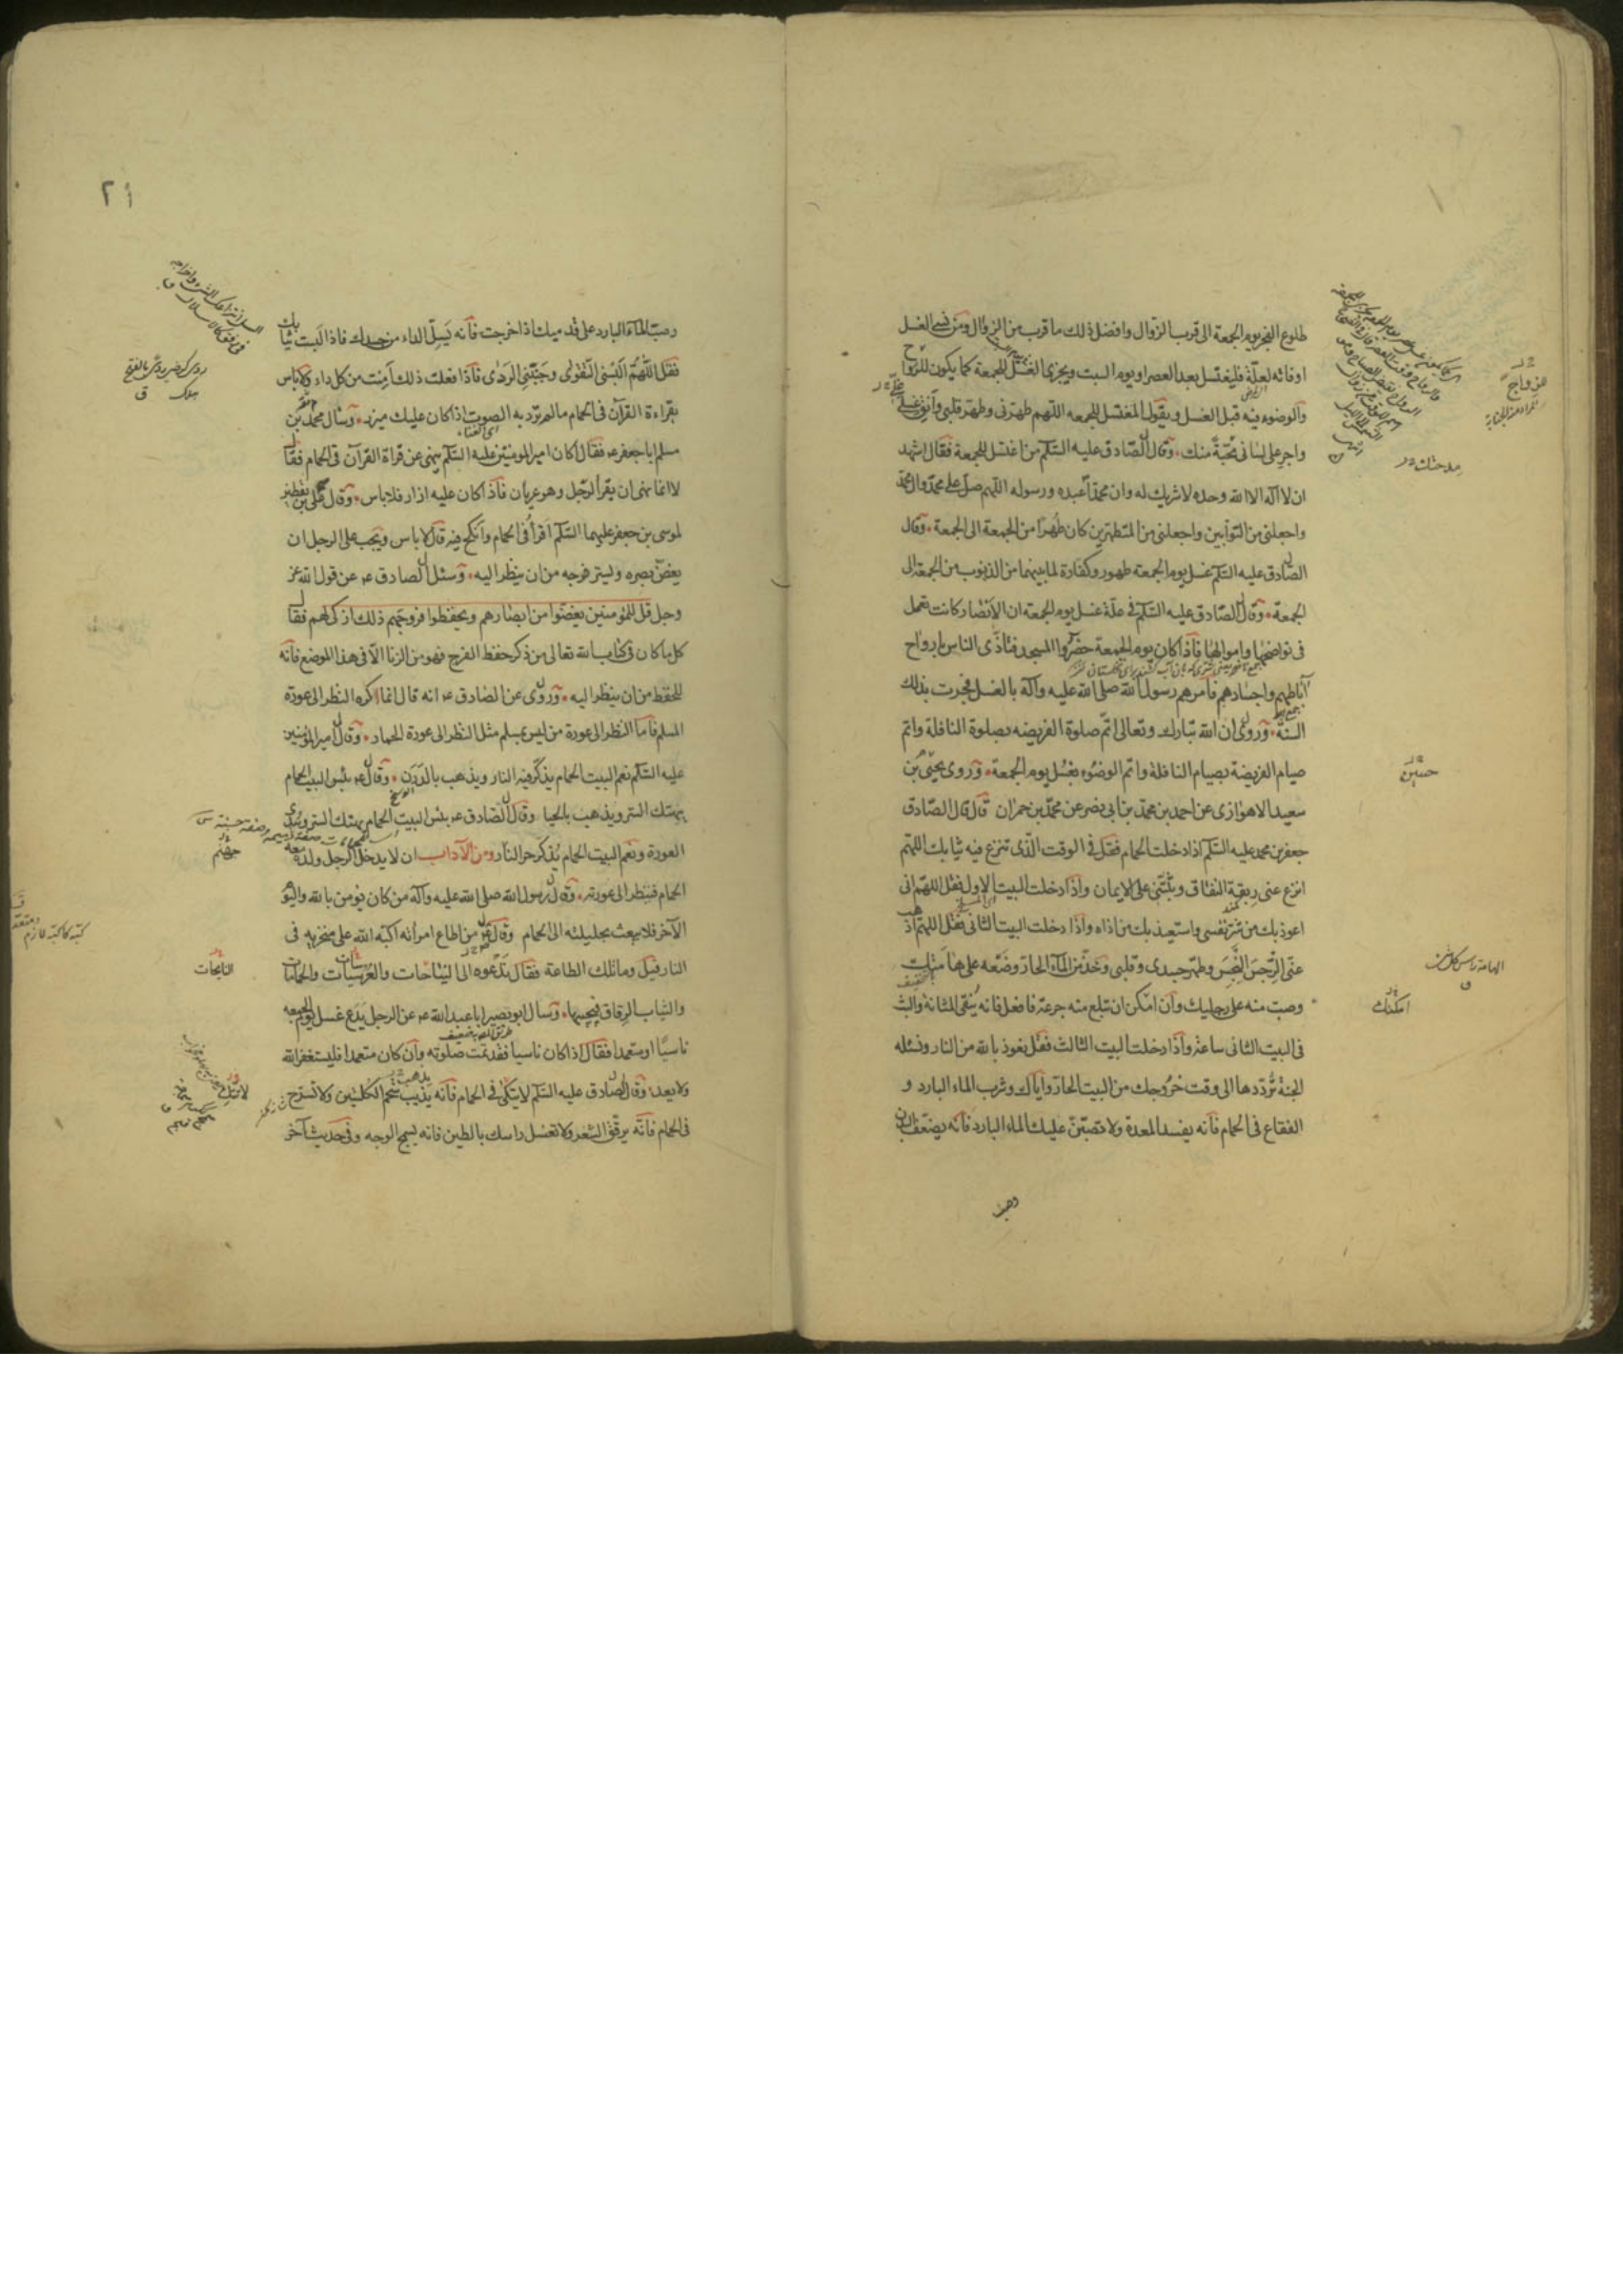 طلوع الفجر يوم الجمعة الى قرب الزوال وافضل ذلك ما قرب من الزوال ومن نسى الغسل
او فاته لعلة فليغتسل بعد العصر او يوم السبت ويجزى الغسل للجمعة كما يكون للزواج
والوضوء فيه قبل الغسل ويقول المغتسل للجمعه اللهم طهرنى وطهر قلبى وانق غسلى
واجر على لسانى محبة منك وقال الصادق عليه السلم من اغتسل للجمعة فقال اشهد
ان لا اله الا الله وحده لا شريك له وان محمدا عبده ورسوله اللهم صل على محمد وال محمد
واجعلنى من التوابين واجعلنى من المتطهرين كان طهرا من الجمعة الى الجمعة وقال
الصادق عليه السلم غسل يوم الجمعة طهور وكفارة لما بينهما من الذنوب من الجمعة الى
الجمعة وقال الصادق عليه السلم فى علة غسل يوم الجمعه ان الانصار كانت تعمل
فى نواضحها واموالها فاذا كان يوم الجمعة حضروا المسجد فتاذى الناس بارواح
اباطهم واجسادهم فامرهم رسول الله صلى الله عليه وآله بالغسل فجرت بذلك
السنة وروى ان الله تبارك وتعالى اتم صلوة الفريضه بصلوة النافلة واتم
صيام الفريضة بصيام النافلة واتم الوضوء بغسل يوم الجمعة وروى يحيى بن
سعيد الاهوازى عن احمد بن محمد بن ابى نصر عن محمد بن حمران قال قال الصادق
جعفر بن محمد عليه السلم اذا دخلت الحمام فقل فى الوقت الذى تنزع فيه ثيابك اللهم
انزع عنى ربقة النفاق وثبتنى على الايمان واذا دخلت البيت الاول فقل اللهم انى
اعوذ بك من شر نفسى واستعيذ بك من اذاه واذا دخلت البيت الثانى فقل اللهم اذهب
عنى الرجس النجس وطهر جسدى وقلبى وخذ من الماء الحار وضعه على هامتك
وصب منه على رجليك وان امكن ان تبلع منه جرعة فافعل فانه ينقى المثانة والبث
فى البيت الثانى ساعة واذا دخلت البيت الثالث فقل نعوذ بالله من النار ونسئله
الجنة ترددها الى وقت خروجك من البيت الحار واياك وشرب الماء البارد و
الفقاع فى الحمام فانه يفسد المعدة ولا تصبن عليك الماء البارد فانه يضعف البدن
وصب
حسين
امكنك
٢١
وصب الماء البارد على قدميك اذا خرجت فانه يسل الداء من جسدك فاذا لبست ثيابك
فقل اللهم البسنى التقوى وجنبنى الردى فاذا فعلت ذلك امنت من كل داء ولا باس
بقراءة القرآن فى الحمام ما لم ترد به الصوت اذا كان عليك ميزر وسال محمد بن
مسلم ابا جعفر ع فقال اكان امير المومنين عليه السلم ينهى عن قراة القرآن فى الحمام فقال
لا انما نهى ان يقرأ الرجل وهو عريان فاذا كان عليه ازار فلا باس وقال على بن يقطين
لموسى بن جعفر عليهما السلم اقرأ فى الحمام وانكح فيه قال لا باس ويجب على الرجل ان
يغض بصره وليستر فرجه من ان ينظر اليه وسئل الصادق ع عن قول الله عز
وجل قل للمؤمنين يغضوا من ابصارهم ويحفظوا فروجهم ذلك ازكى لهم فقال
كل ما كان فى كتاب الله تعالى من ذكر حفظ الفرج فهو من الزنا الا فى هذا الموضع فانه
للحفظ من ان ينظر اليه وروى عن الصادق ع انه قال انما اكره النظر الى عورة
المسلم فاما النظر الى عورة من ليس بمسلم مثل النظر الى عورة الحمار وقال امير المؤمنين
عليه السلم نعم البيت الحمام يذكر فيه النار ويذهب بالدرن وقال ع بئس البيت الحمام
يهتك الستر ويذهب بالحيا وقال الصادق ع بئس البيت الحمام يهتك الستر ويبدى
العورة ونعم البيت الحمام يذكر حر النار ومن الآداب ان لا يدخل الرجل ولده معه
الحمام فينظر الى عورته وقال رسول الله صلى الله عليه وآله من كان يؤمن بالله واليوم
الآخر فلا يبعث بحليلته الى الحمام وقال ع من اطاع امرأته اكبه الله على منخريه فى
النار فقيل وما تلك الطاعة فقال تدعوه الى النياحات والعرسات والحمامات
والثياب الرقاق فيجيبها وسال ابو بصير ابا عبد الله ع عن الرجل يدع غسل يوم الجمعه
ناسيا او متعمدا فقال اذا كان ناسيا فقد تمت صلوته وان كان متعمدا فليستغفر الله
ولا يعد وقال الصادق عليه السلم لا تتكئ فى الحمام فانه يذيب شحم الكليتين ولا تسرح
فى الحمام فانه يرقق الشعر ولا تغسل راسك بالطين فانه يسمج الوجه وفى حديث آخر
جهنم
النايحات